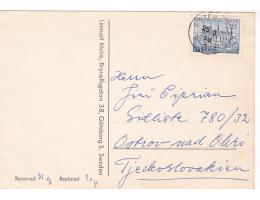 Lennart Malm, Brynolfsgatan 38, Göteborg S, Sweden
Received 31/3 Replaied 1/4
Herrn
Jiří Ciprian
Sidliste 780/32
Ostrov nad Ohři
Tjeckoslovakien